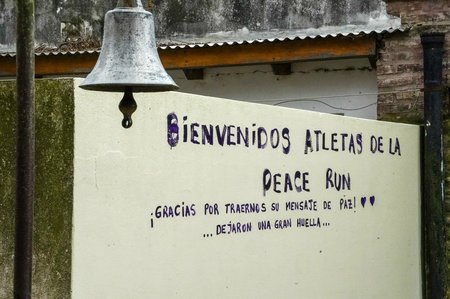 BIENVENIDOS ATLETAS DE LA
PEACE RUN
¡GRACIAS POR TRAERNOS SU MENSAJE DE PAZ! ♥♥
...DEJARON UNA GRAN HUELLA...